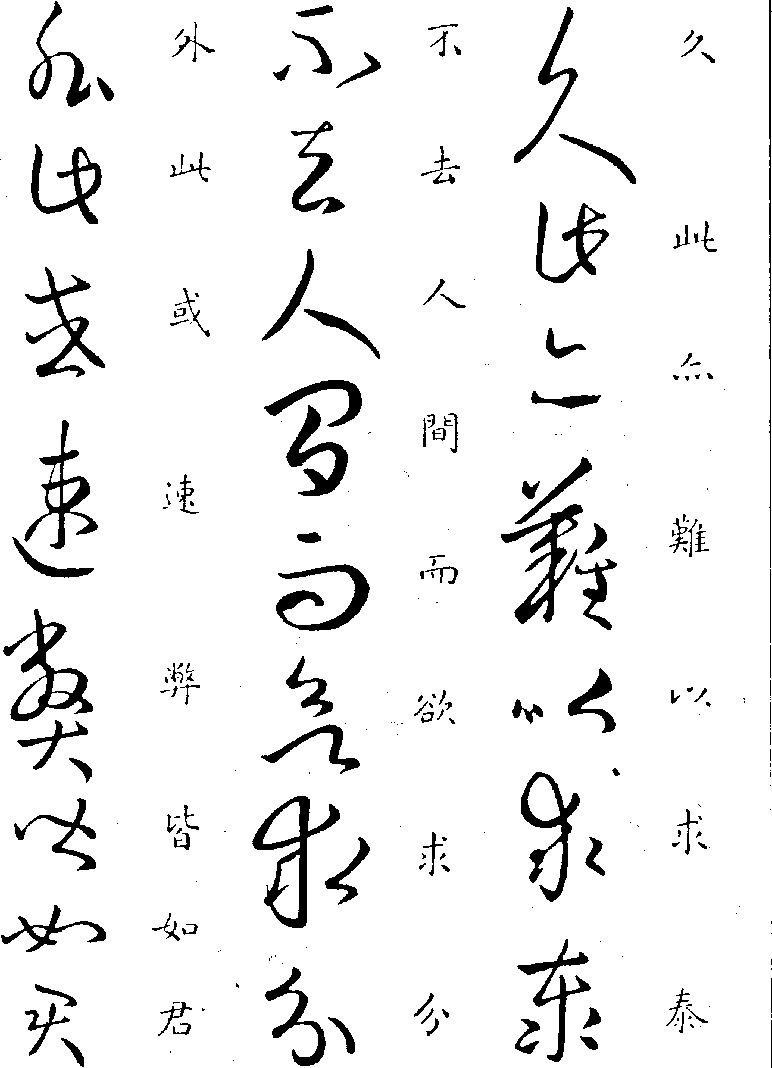 久此亦難以求泰
久此亦難以求泰
不去人間而欲求分
不去人間而欲求分
外此或速弊皆如君
外此或速弊皆如君